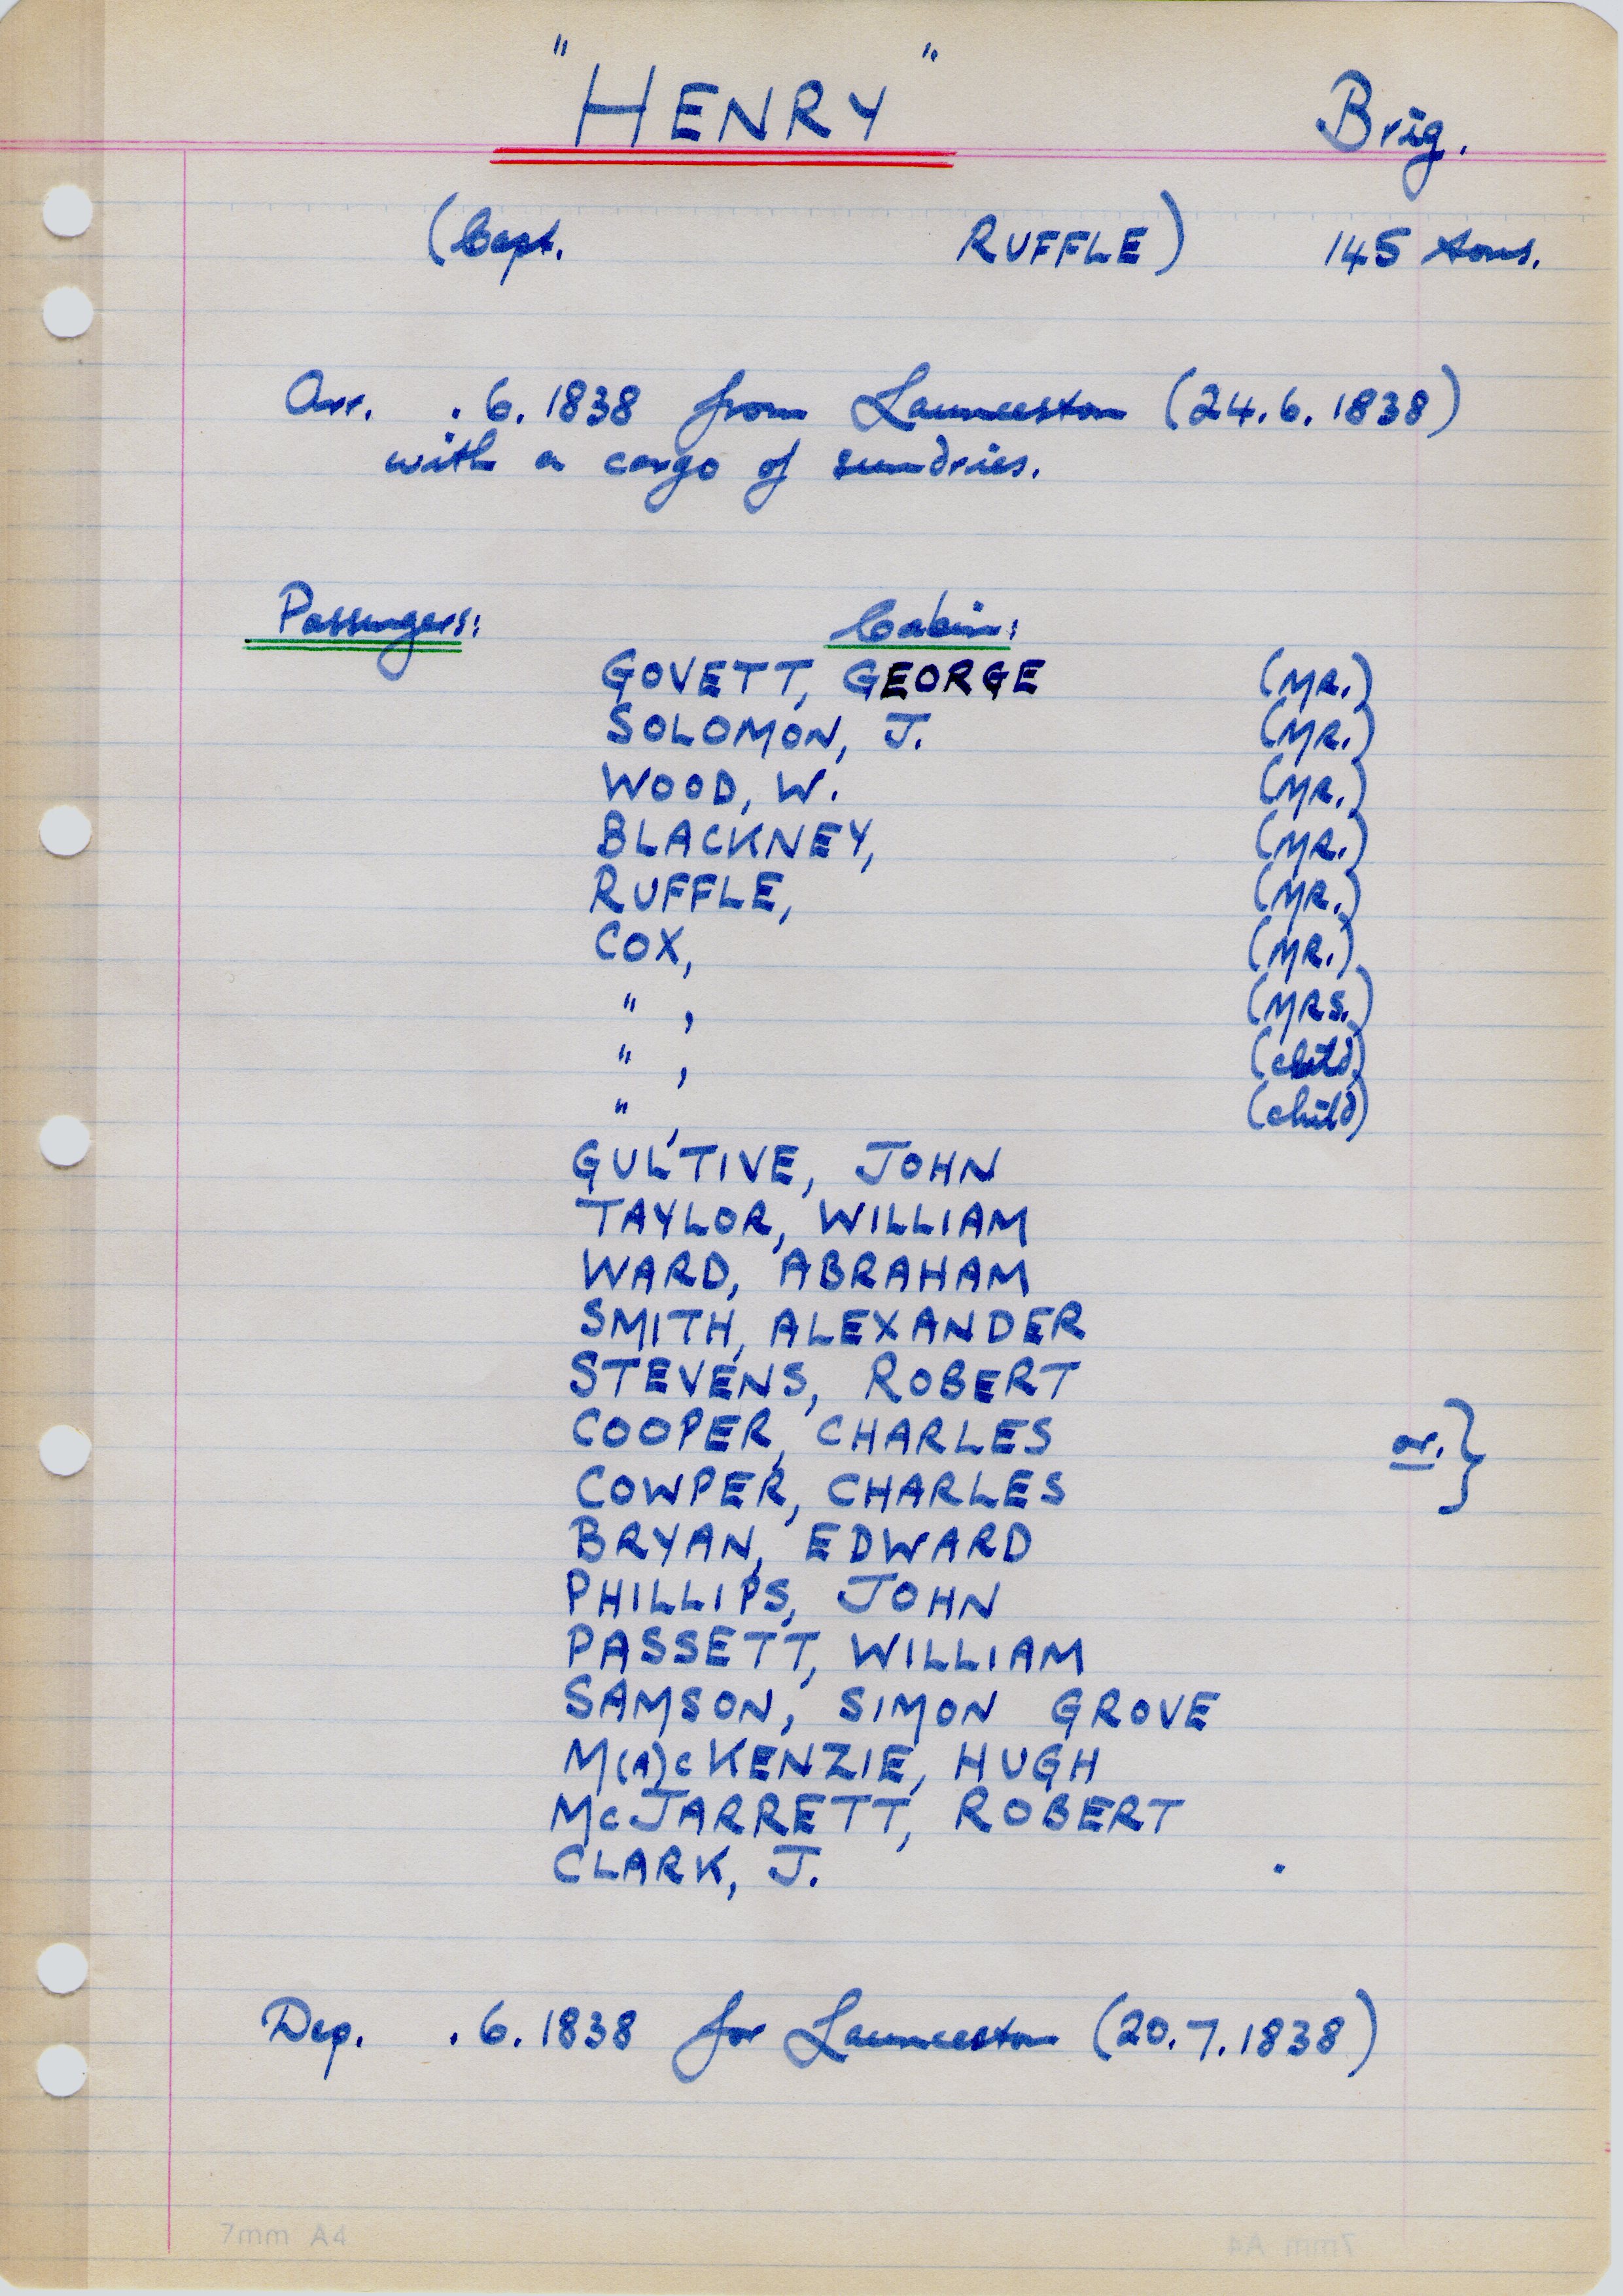 "HENRY" Brig.
(Capt. RUFFLE) 145 tons.
Arr. .6.1838 from Launceston (24.6.1838)
with a cargo of sundries.
Passengers: Cabin:
GOVETT, GEORGE (MR.)
SOLOMON, J. (MR.)
WOOD, W. (MR.)
BLACKNEY, (MR.)
RUFFLE, (MR.)
COX, (MR.)
" , (MRS.)
" , (child)
" , (child)
GUL'TIVE, JOHN
TAYLOR, WILLIAM
WARD, ABRAHAM
SMITH, ALEXANDER
STEVENS, ROBERT
COOPER, CHARLES
or. }
COWPER, CHARLES
BRYAN, EDWARD
PHILLIPS, JOHN
PASSETT, WILLIAM
SAMSON, SIMON GROVE
M(A)cKENZIE, HUGH
McJARRETT, ROBERT
CLARK, J. .
Dep. .6.1838 for Launceston (20.7.1838)
7mm A4